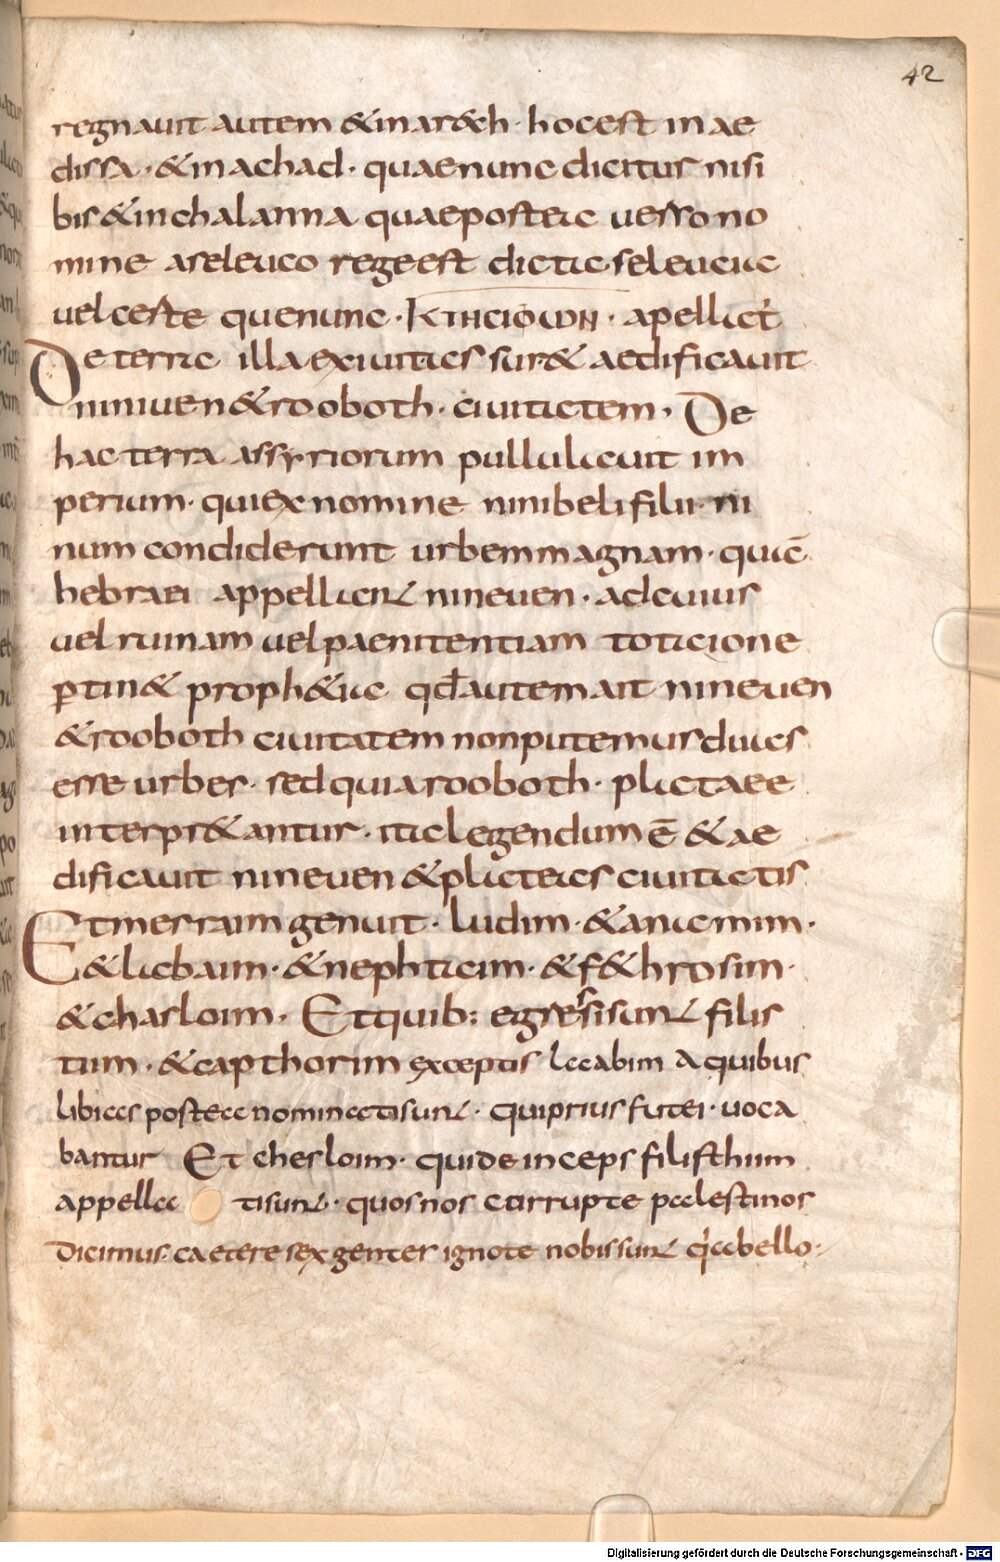 42
regnauit autem & in arach · hoc est in ae
dissa · & in achad · quae nunc dicitur nisi
bis & in chalanna quae postea uerso no
mine a seleuco rege est dicta seleucia
uel certe que nunc · Κτησιφων · apellat̄
De terra illa exiuit assur & aedificauit
niniuen & rooboth · ciuitatem · De
hac terra assyriorum pullulauit im
perium · qui ex nomine nini beli filii · ni
num condiderunt urbem magnam · quā
hebraei appellant nineuen · ad cuius
uel ruinam uel paenitentiam tota ione
ꝑtin& proph&ia qđ autem ait nineuen
& rooboth ciuitatem non putemus duas
esse urbes · sed quia rooboth · plataee
interpr&antur · ita legendum ē & ae
dificauit nineuen & plateas ciuitatis
Et mesraim genuit · ludim · & anamim ·
& labaim · & nephtaim · & f&hrosim ·
& chasloim · Et quib: egressi sunt filis
tiim · & capthorim exceptis laabim a quibus
libies postea nominati sunt · qui prius futei · uoca
bantur Et chesloim · qui deinceps filisthiim
appella ti sunt · quos nos corrupte palestinos
dicimus · caetere sex gentes ignote nobis sunt q̇ abello ·
Digitalisierung gefördert durch die Deutsche Forschungsgemeinschaft - DFG